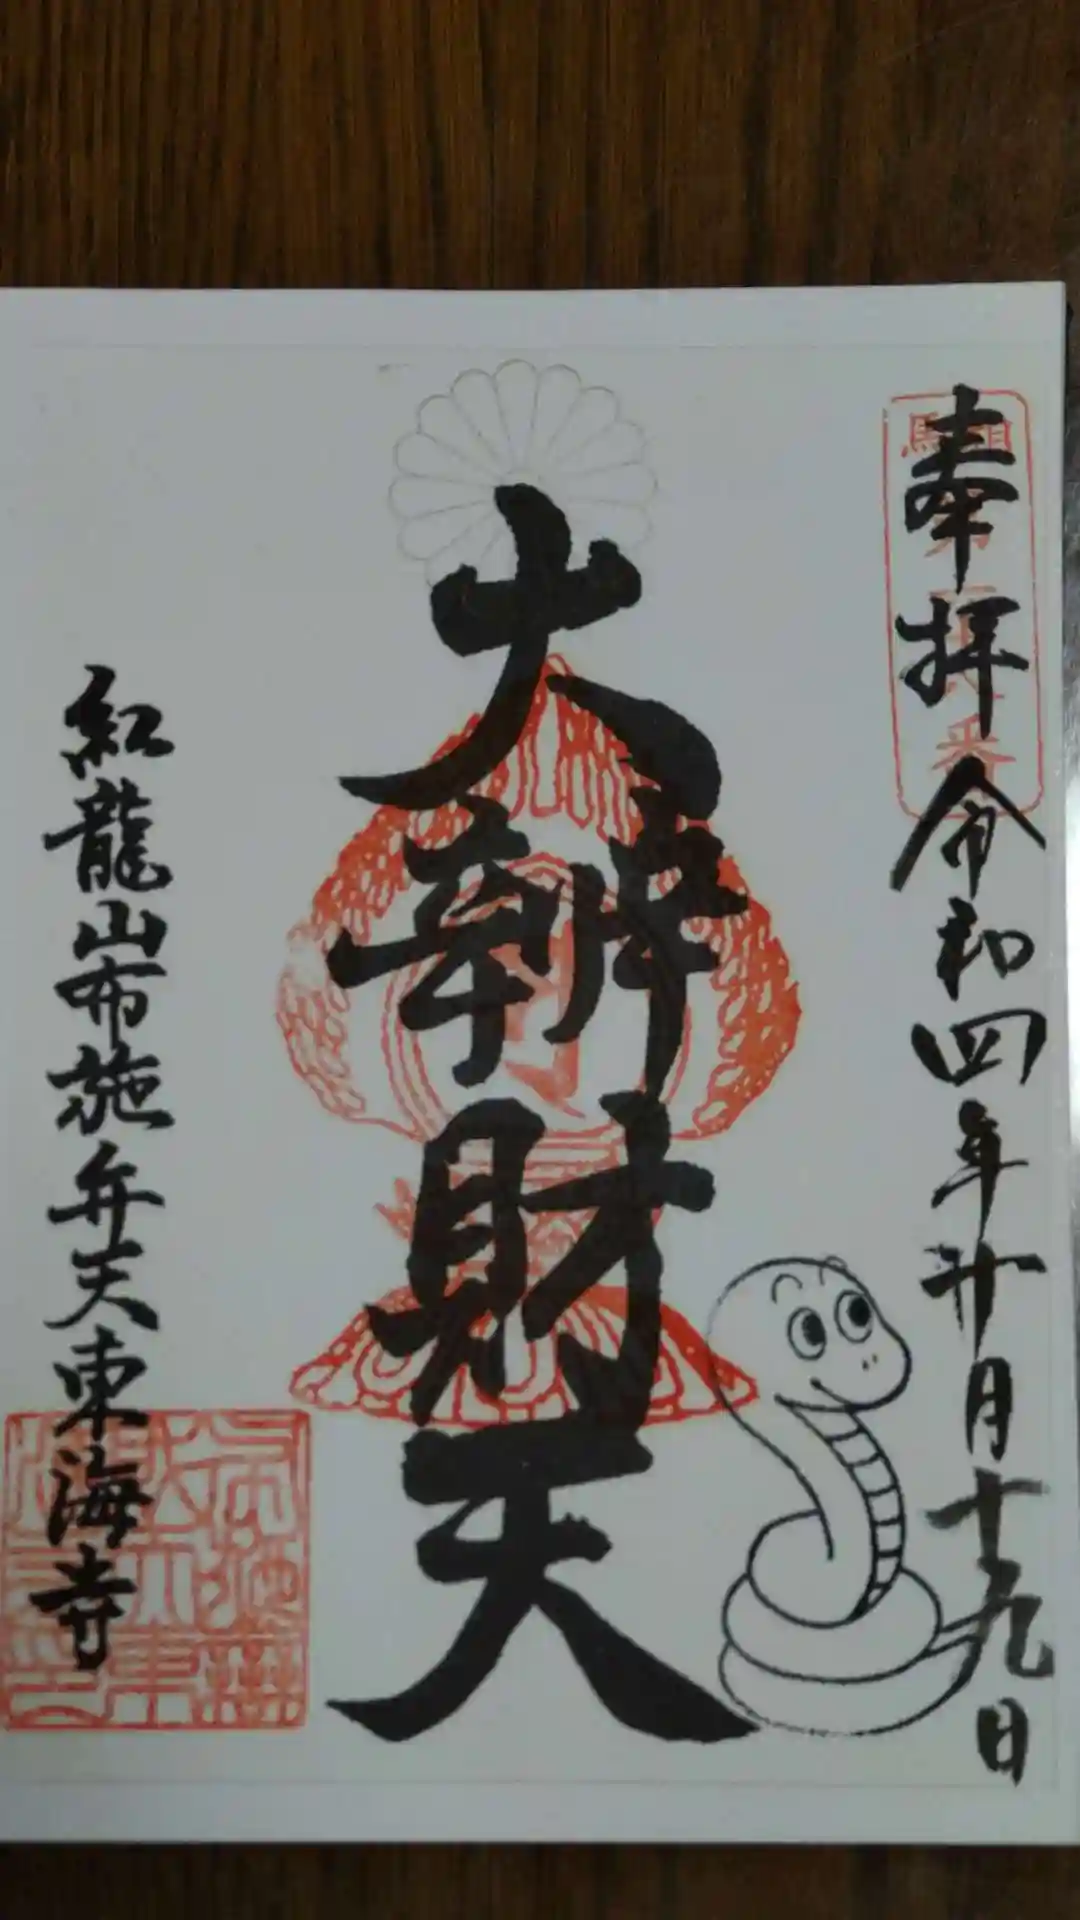 奉拝
令和四年廿月十九日
大辨財天
紅龍山布施弁天東海寺